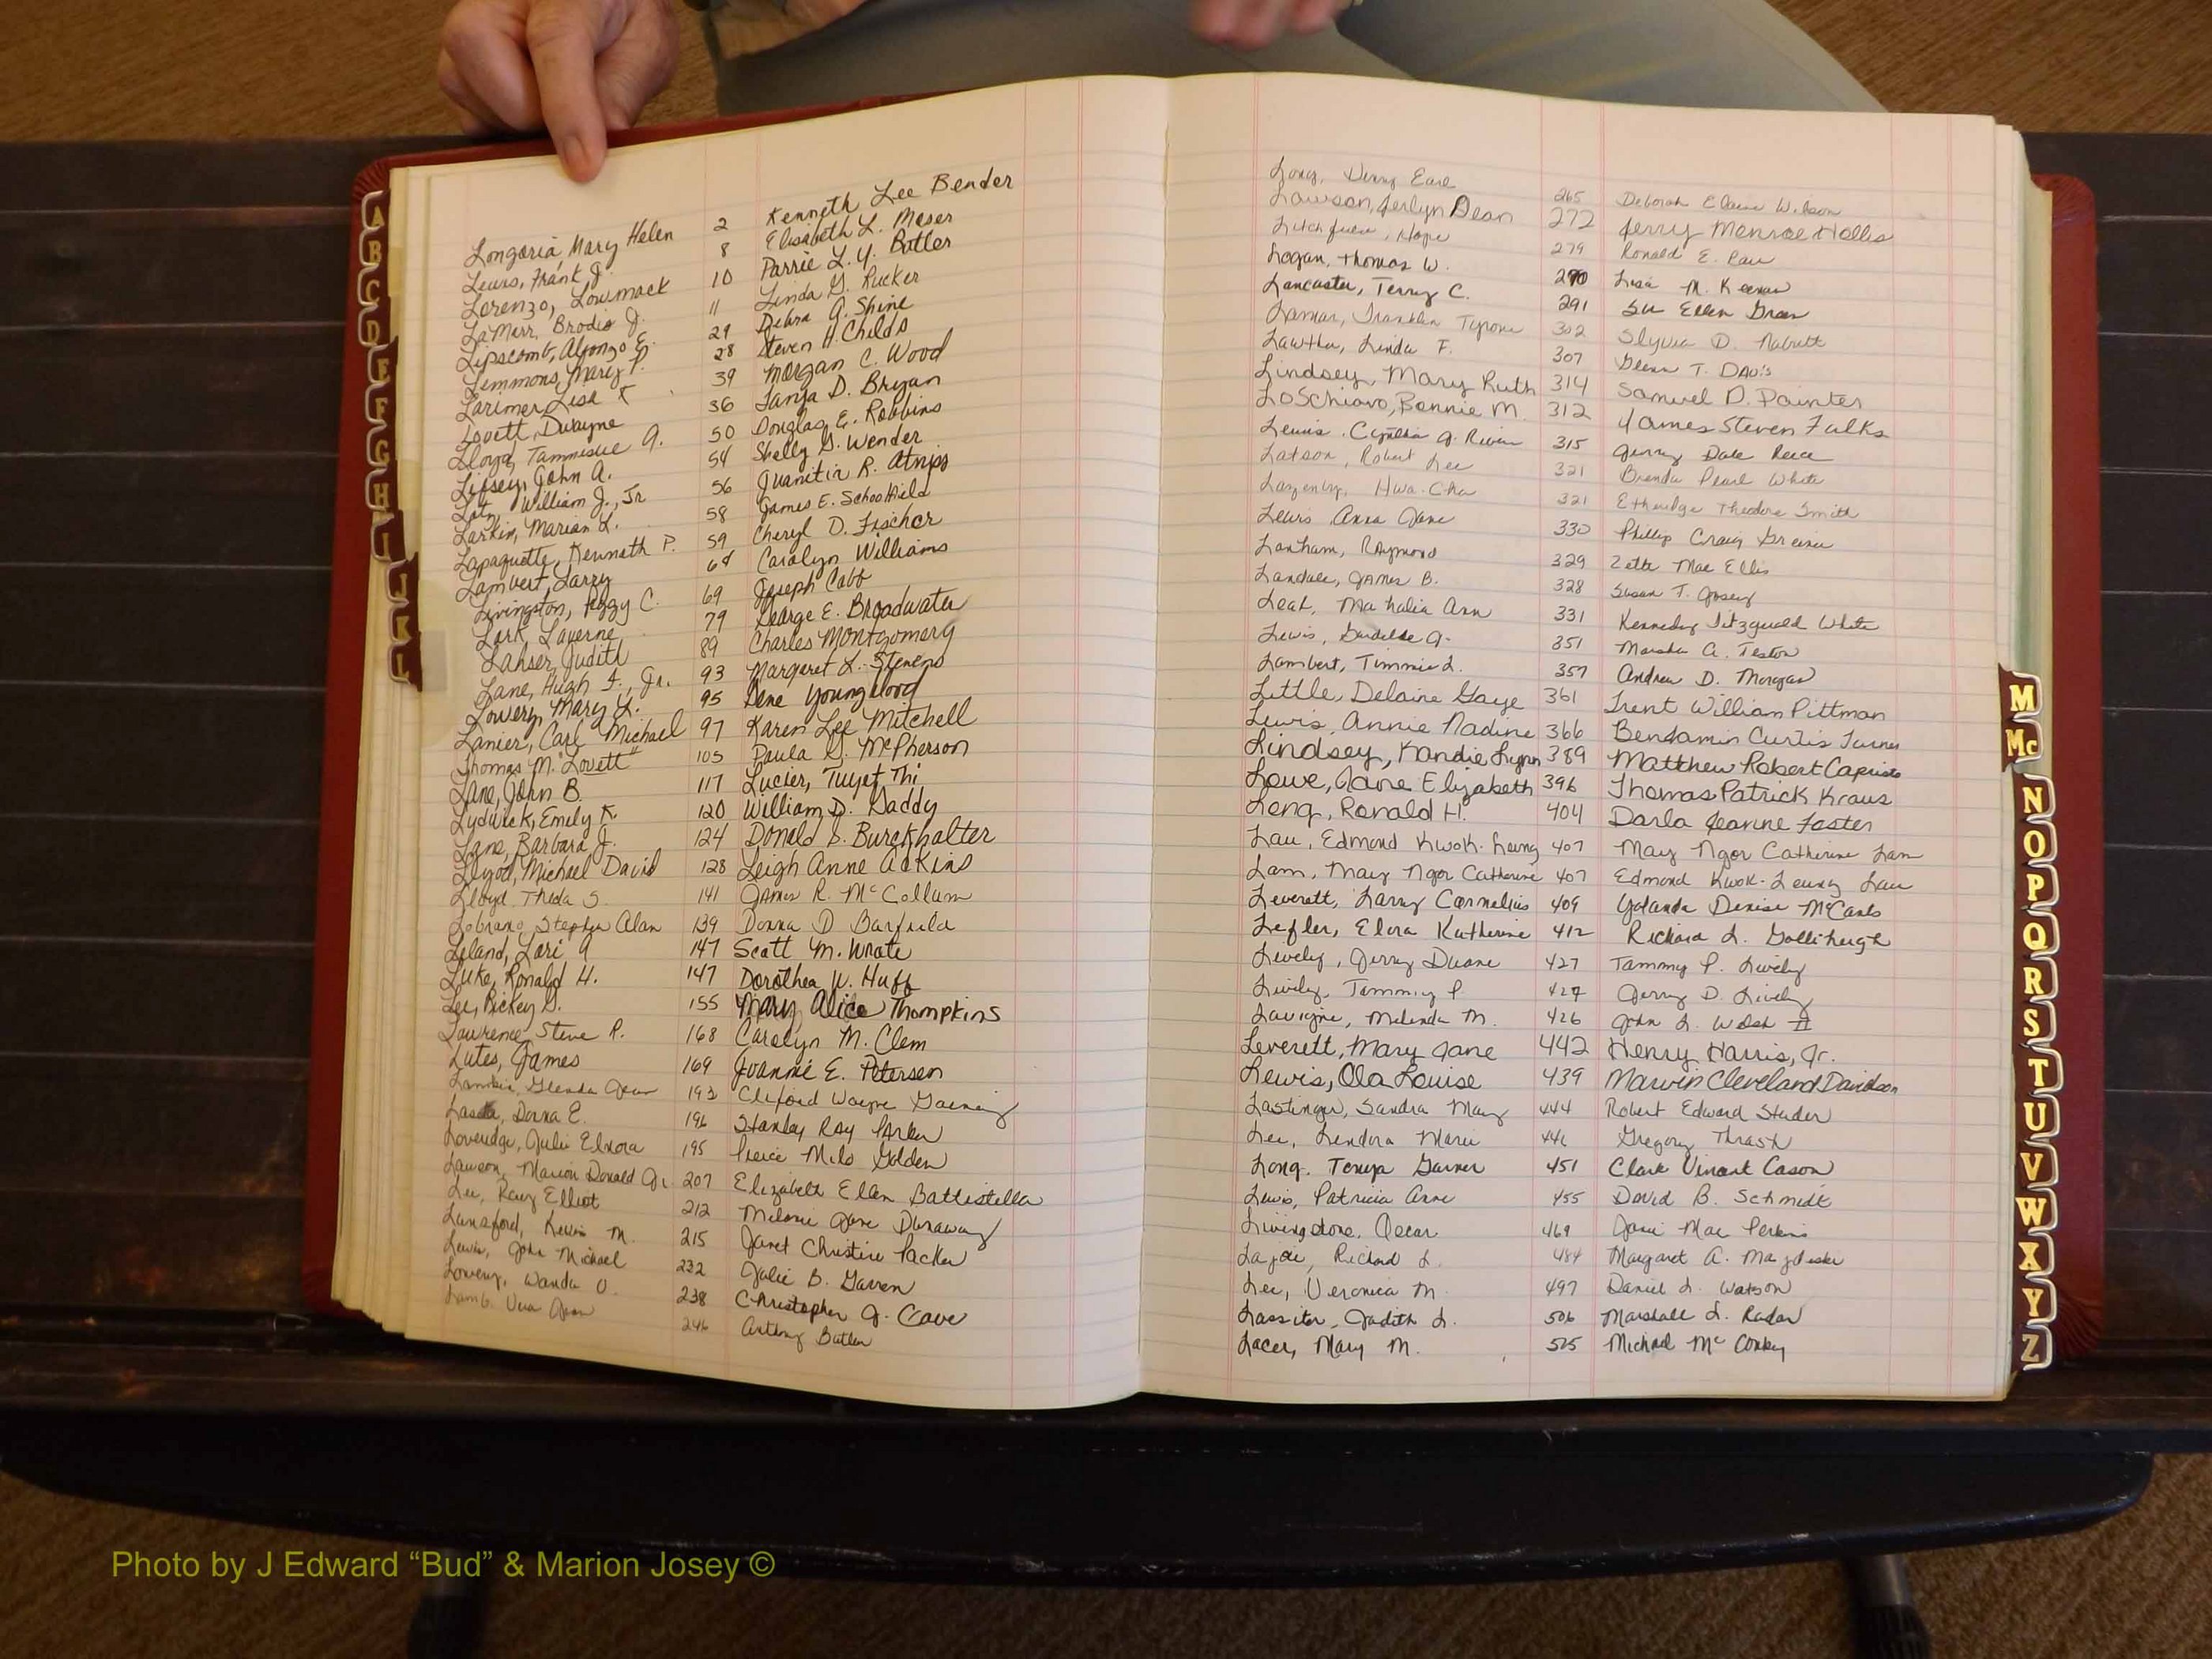 Longoria, Mary Helen 2 Kenneth Lee Bender
Lewis, Frank J. 8 Elisabeth L. Moser
Lorenzo, Lowmack 10 Parrie L. Y. Butler
LaMarr, Brodis J. 11 Linda G. Rucker
Lipscomb, Alfonzo E. 29 Debra A. Shine
Lemmons, Mary P. 28 Steven H. Childs
Larimer, Lisa K 39 Morgan C. Wood
Lovett, Dwayne 36 Tanja D. Bryan
Lloyd, Tammie A. 50 Douglas E. Robbins
Lifsey, John A. 54 Shelly G. Wender
Lotz, William J., Jr 56 Juanitia R. Atnips
Larkin, Marian L. 58 James E. Schoolfield
Lapaquette, Kenneth P. 59 Cheryl D. Fischer
Lambert, Larry 64 Carolyn Williams
Livingston, Peggy C. 69 Joseph Cabb
Lark, Laverne 79 George E. Broadwater
Lahser, Judith 89 Charles Montgomery
Lane, Hugh F., Jr. 93 Margaret L. Stevens
Lowery, Mary L. 95 Gene Youngblood
Lanier, Carl Michael 97 Karen Lee Mitchell
Thomas M. "Lovett" 105 Paula G. McPherson
Lane, John B. 117 Lucier, Tuyet Thi
Lydwick, Emily K. 120 William D. Gaddy
Lane, Barbara J. 124 Donald S. Burckhalter
Llyod, Michael David 128 Leigh Anne Adkins
Lloyd, Theda S. 141 James R. McCollum
Lobrano, Stephen Alan 139 Donna D Barfield
Leland, Lori A 147 Scott M. Wrate
Luke, Ronald H. 147 Dorothea W. Huff
Lee, Rickey D. 155 Mary Alice Thompkins
Lawrence, Steve R. 168 Carolyn M. Clem
Lutes, James 169 Joannie E. Petersen
Glenda Jean 193 Cliford Wayne
Donna E. 196 Stanley Ray Parker
Loveridge, Julie Elnora 195 Pierce Milo Golden
Lawson, Marion Donald Jr. 207 Elizabeth Ellen Battistella
Lee, Rany Elliot 212 Melanie Jane Dunaway
Lunsford, Kevin M. 215 Janet Christine Packer
Lewis, John Michael 232 Julie B. Garren
Lowery, Wanda O. 238 Christopher J. Cave
Lamb, Vera Jean 246 Anthony Butler
Long, Denny Earl 265 Deborah Elaine Wilson
Lawson, Jerlyn Dean 272 Jerry Monroe Hollis
Litchfield, Hope 279 Ronald E.
Logan, Thomas W. 290 Lisa M. Keenan
Lancaster, Terry C. 291 Su Ellen
Lamar, Franklin Tyrone 302 Slyvia D.
Lawther, Linda F. 307 Glenn T. Davis
Lindsey, Mary Ruth 314 Samuel D. Painter
LoSchiavo, Bonnie M. 312 James Steven Fulks
Lewis, Cynthia J. 315 Jerry Dale Reece
Latson, Robert Lee 321 Brenda Pearl White
Lazenby, Hwa-Cha 321 Etheridge Theodore Smith
Lewis, Anna Jane 330 Phillip Craig Greene
Lanham, Raymond 329 Zette Mae Ellis
Landale, James B. 328 Susan T. Josey
Leak, Mahalia Ann 331 Kennedy Fitzgerald White
Lewis, A. 351 Marsha A. Teston
Lambert, Timmie L. 357 Andrew D. Morgan
Little, Delaine Gaye 361 Trent William Pittman
Lewis, Annie Nadine 366 Benjamin Curtis Turner
Lindsey, Kandie Lynn 389 Matthew Robert Capristo
Lowe, Jane Elizabeth 396 Thomas Patrick Kraus
Leng, Ronald H. 404 Darla Jeanne Foster
Lau, Edmond Kwok-Leung 407 May Ngor Catherine Lam
Lam, May Ngor Catherine 407 Edmond Kwok-Leung Lau
Leverett, Larry Cornelius 409 Yolanda Denise McCants
Lefler, Elora Katherine 412 Richard L. Gollihugh
Lively, Jerry Duane 427 Tammy P. Lively
Lively, Tammy P. 427 Jerry D. Lively
Lavigne, Melinda M. 426 John L. Welsh II
Leverett, Mary Jane 442 Henry Harris, Jr.
Lewis, Ola Louise 439 Marvin Cleveland Davidson
Lastinger, Sandra May 444 Robert Edward Studer
Lee, Lendora Marie 446 Gregory Thrash
Long, Tonya Garner 451 Clark Vincent Cason
Lewis, Patricia Anne 455 David B. Schmidt
Livingstone, Oscar 469 Janie Mae Perkins
Lajoie, Richard L. 484 Margaret A.
Lee, Veronica M. 497 Daniel L. Watson
Lassiter, Judith L. 506 Marshall L. Radar
Lacer, Mary M. 505 Michael McConkey
A
B
C
D
E
F
G
H
I
J
K
L
M
Mc
N
O
P
Q
R
S
T
U
V
W
X
Y
Z
Photo by J Edward “Bud” & Marion Josey ©